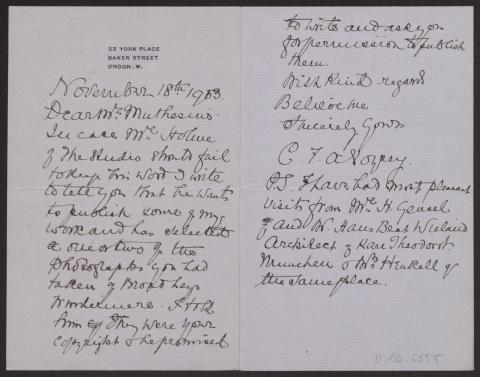 23 YORK PLACE
BAKER STREET
LONDON. W.
November 18th 1903.
Dear Mr. Muthesius.
In case Mr. Holme
of the Studio should fail
to keep his word I write
to tell you that he wants
to publish some of my
work and has selected
a one or two of the
photographs you had
taken of Broadleys
Windermere. I told
him of they were your
copyright & he promised
to write and ask you
for permission to publish
them.
With kind regards
Believe me
Sincerely yours
C. F. A. Voysey.
P.S. I have had most pleasant
visits from Mr. H. Gensel
of and W. Hans Beat Wieland
Architect of Karl Theodorst
Munchen & Mr. Henkell of
the same place.
D 102-6555